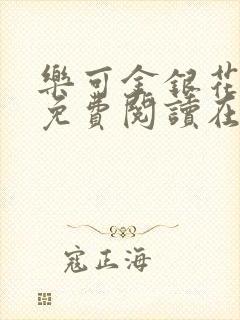 樂可金銀花
免費閱讀在
寇正海